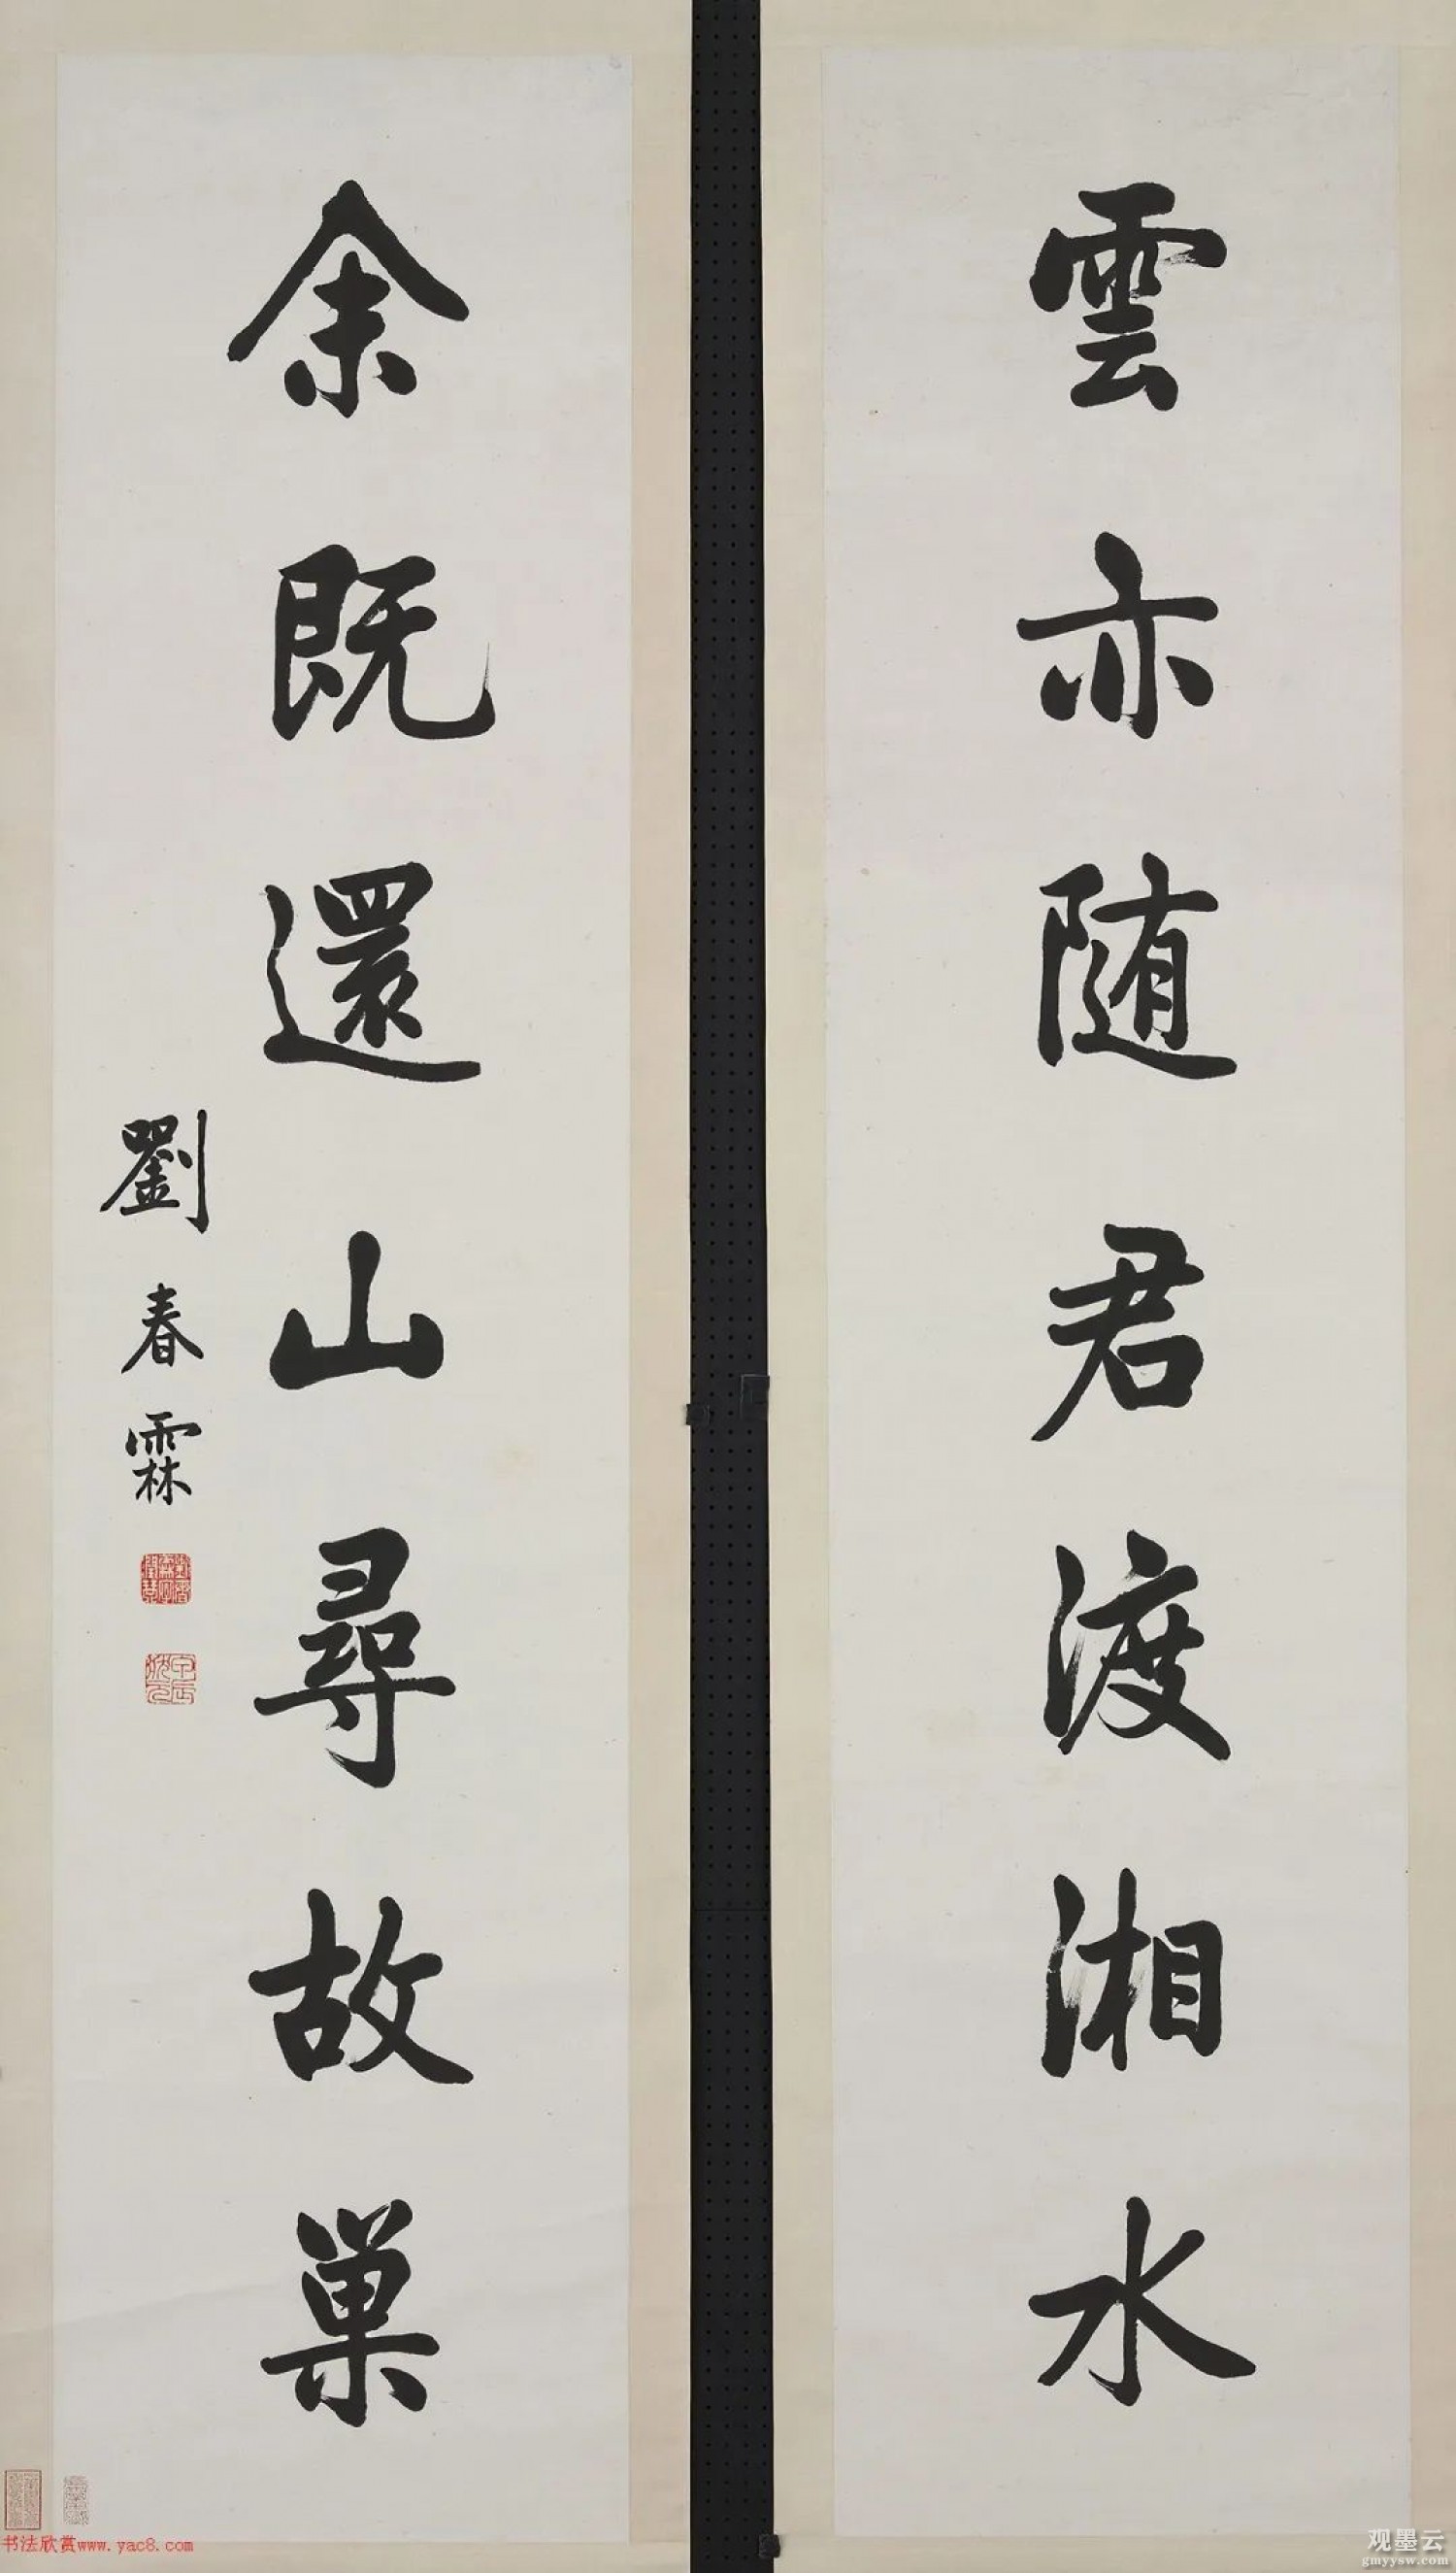 雲亦随君渡湘水
余既還山尋故巢
劉春霖
书法欣赏www.yac8.com
观墨云
gmyysw.com